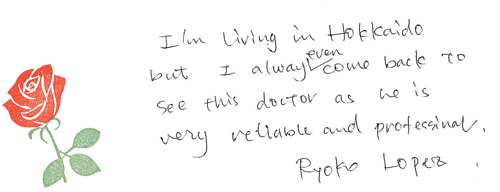 I'm living in Hokkaido
but I always even come back to
see this doctor as he is
very reliable and professinal.
Ryoko Lopez